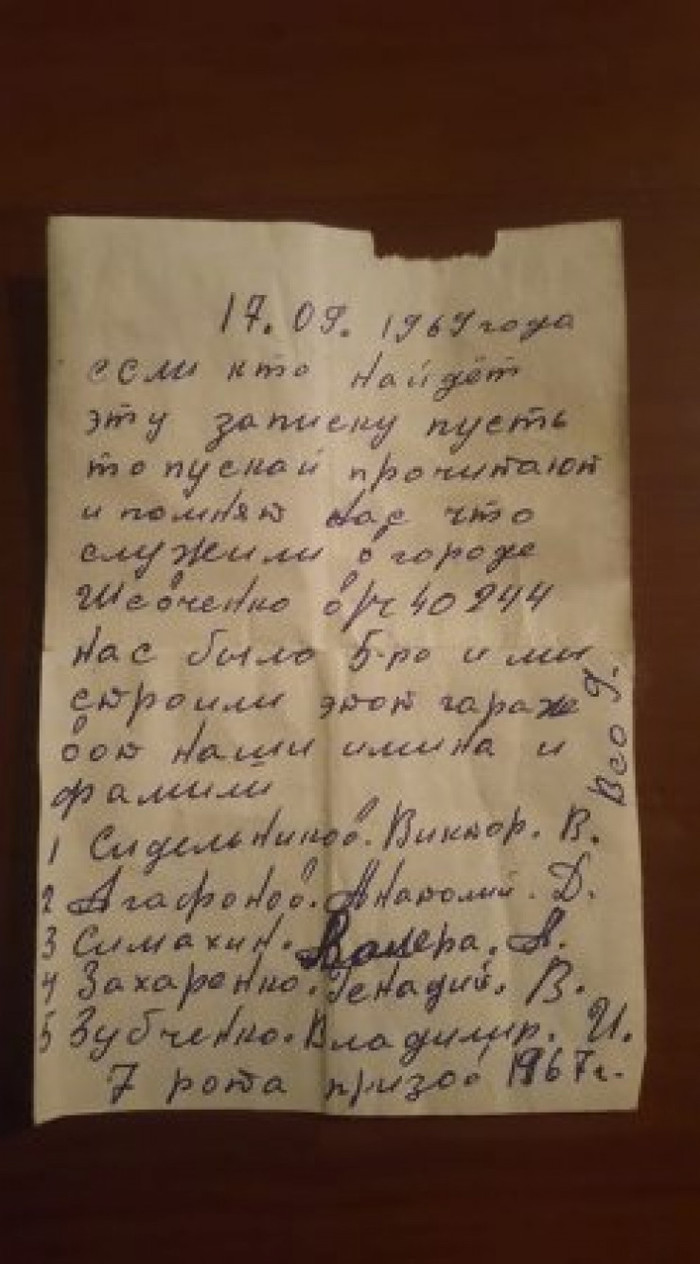 17. 09. 1969 года
если кто найдёт
эту записку пусть
то пускай прочитают
и помнят нас что
служили в городе
Шевченко в/ч 40244
нас было 5-ро и ми
строили этот гараж
вот наши имина и
фамилй
1 Сидельников. Виктор. В.
2 Агафонов. Анатолий. Д.
3 Симахин. Валера. А.
4 Захаренко. Генадий. В.
5 Зубченко. Владимир. И.
7 рота призов 1967г.